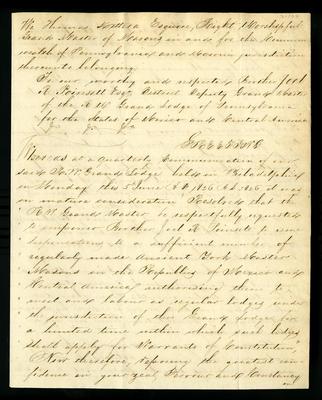 We Thomas Kittera Esquire, Right Worshipful
Grand Master of Masons in and for the Common
wealth of Pennsylvania and Masonic jurisdiction
thereunto belonging
To our worthy and respected Brother Joel
R. Poinsett Esqr District Deputy Grand Master
of the R W Grand Lodge of Pennsylvania
for the States of Mexico and Central America
&c &c &c
Greeting
Whereas at a Quarterly Communication of our
said R. W. Grand Lodge held in Philadelphia
on Monday the 5 June A D 1826 it was
on mature consideration Resolved that the
R. W. Grand Master be respectfully requested
to empower Brother Joel R Poinsett to issue
dispensations to a sufficient number of
regularly made Ancient York Master
Masons in the Republics of Mexico and
Central America, authorising them to
meet and labour as regular lodges under
the jurisdiction of this Grand Lodge, for
a limited time within which such lodges
shall apply for Warrants of Constitution
Now therefore, reposing the greatest con
fidence in your zeal, fervour and constancy